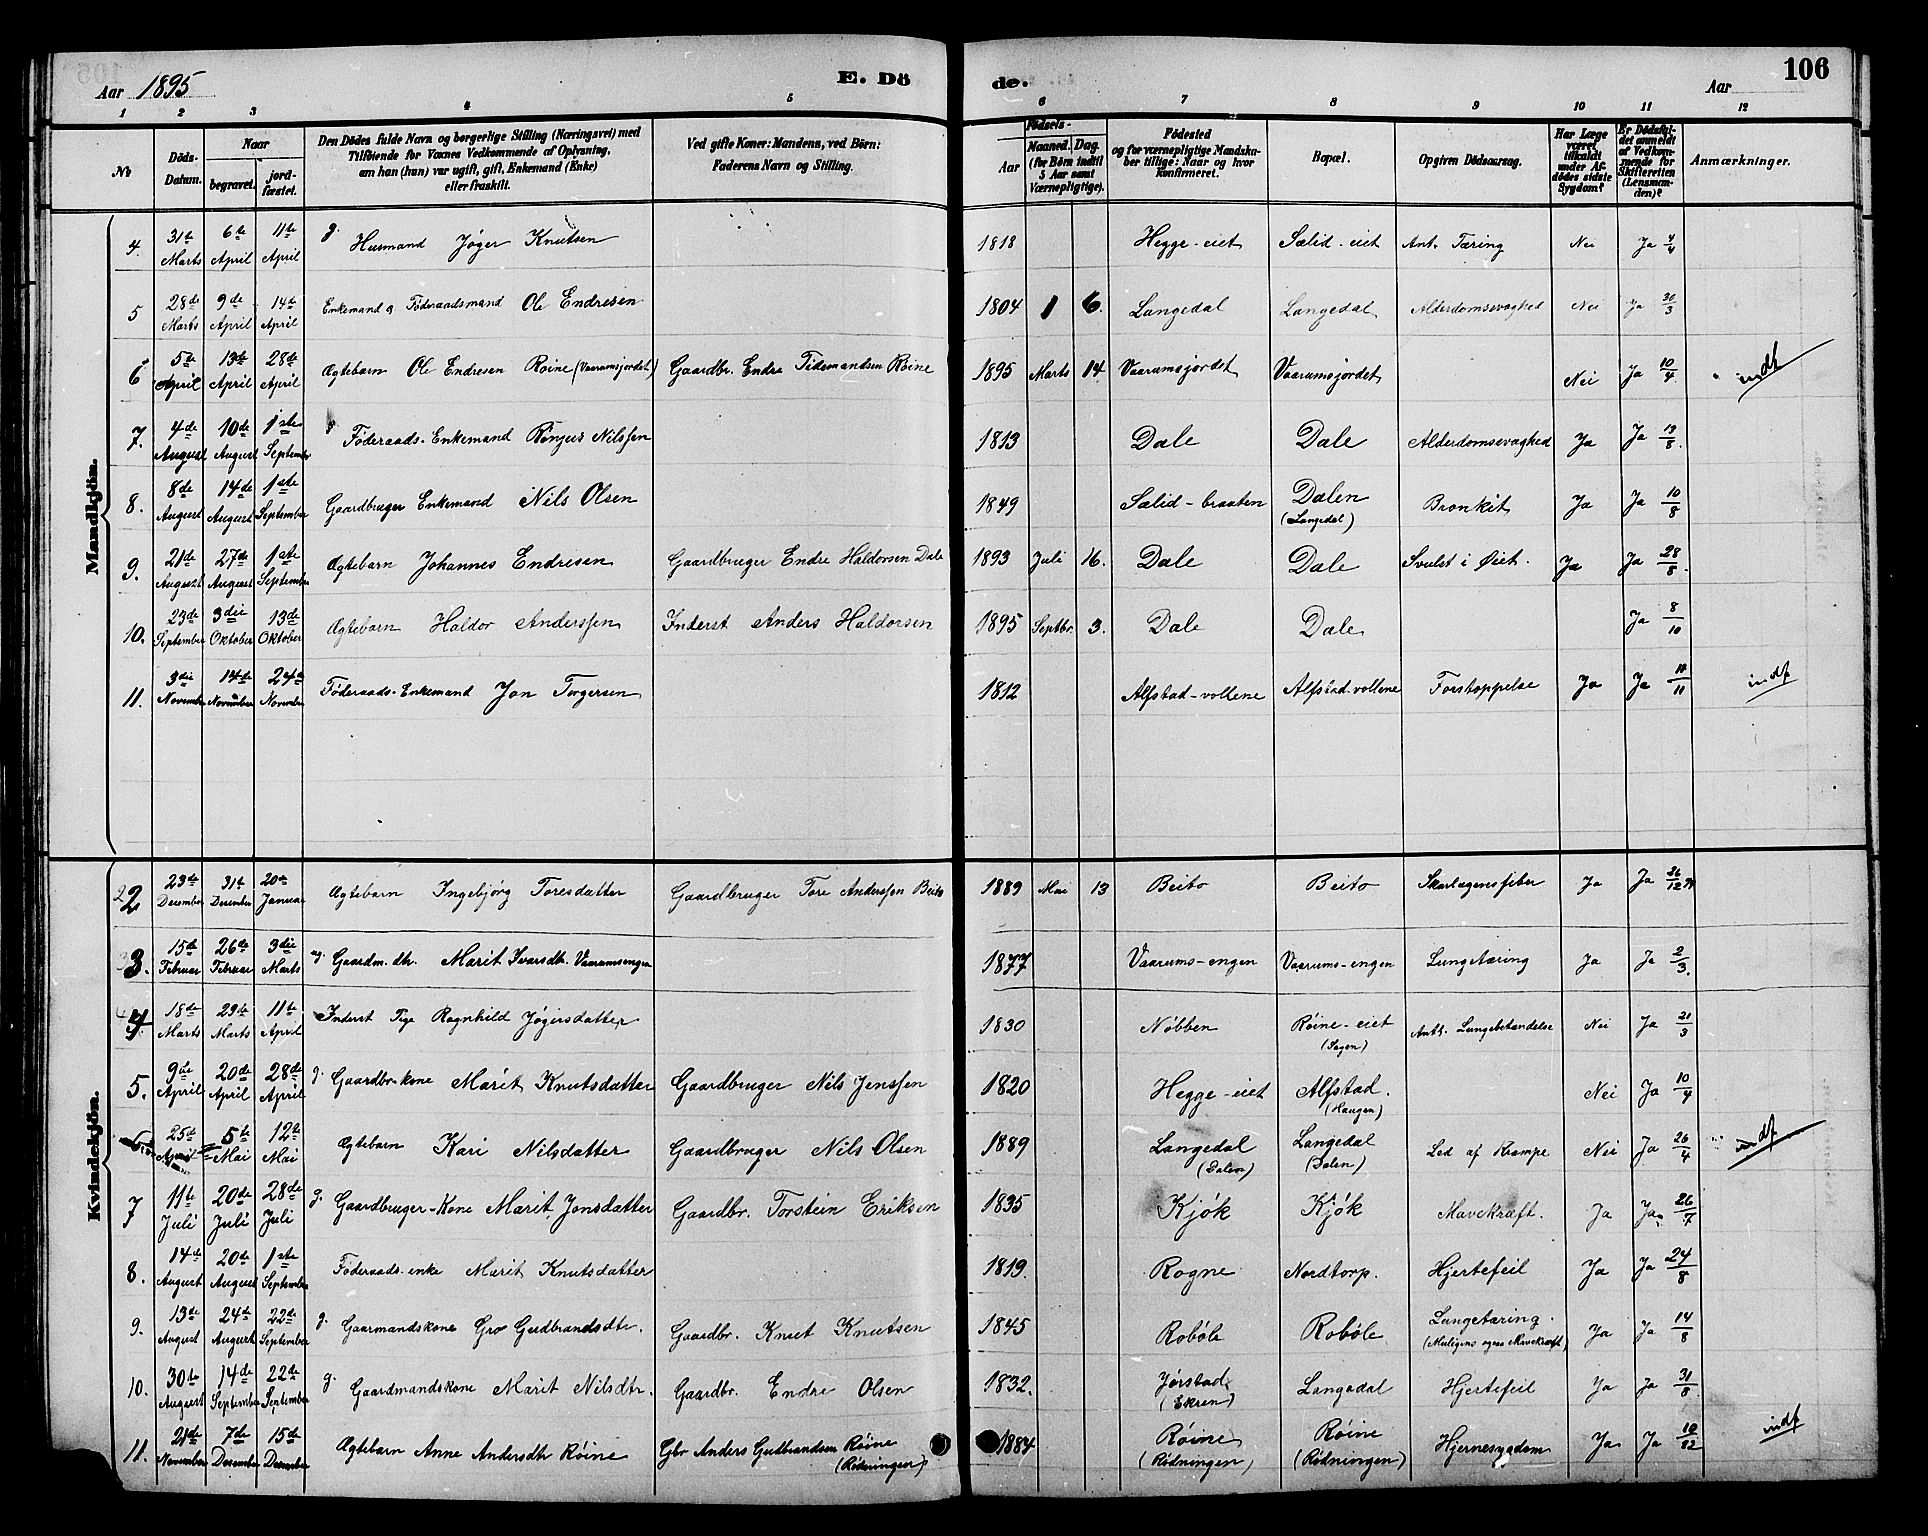 Aar 1895
E. Dö
de.
Aar
106
1 2 3 4 5 6 7 8 9 10 11 12
No
Döds-Datum.
Naar
begravet.
jord-fæstet.
Den Dödes fulde Navn og borgerlige Stilling (Næringsvei) med
Tilföiende for Voxnes Vedkommende af Oplysning,
om han (hun) var ugift, gift, Enkemand (Enke)
eller fraskilt.
Ved gifte Koner: Mandens, ved Börn:
Faderens Navn og Stilling.
Födsels-
Aar
Maaned. Dag.
(for Börn indtil
5 Aar samt
Værnepligtige).
Födested
og for værnepligtige Mandska-
ber tillige: Naar og hvor
konfirmeret.
Bopæl.
Opgiven Dödsaarsag.
Har Læge
været
tilkaldt
under Af-
dödes sidste
Sygdom?
Er Dödsfal-
det anmeldt
af Vedkom-
mende for
Skifteretten
(Lensman-
den)?
Anmærkninger.
Mandkjön.
4. 31te Marts 6te April 11te April g. Husmand Jøger Knutsen 1818 Hegge-eiet Sælid-eiet Ant. Tæring Nei Ja 4/4
5 28de Marts 9de April 14de April Enkemand & Föderaadsmand Ole Endresen 1804 1 6. Langedal Langedal Alderdomssvaghed Nei Ja 30/3
6 5te April 13de April 28de April Ægtebarn Ole Endresen Røine (Vaarumsjordet) Gaardbr. Endre Tidemandsen Røine 1895 Marts 14 Vaarumsjordet Vaarumsjordet Nei Ja 10/4 indf
7. 4de August 10de August 1ste September Föderaads-Enkemand Nilssen 1813 Dale Dale Alderdomssvaghed Ja Ja 13/8.
8. 8de August 14de August 1ste September Gaardbruger Enkemand Nils Olsen 1849 Sælid-braaten Dalen (Langedal) Bronkit Ja Ja 10/8
9. 21de August 27de August 1ste September Ægtebarn Johannes Endresen Gaardbruger Endre Haldorsen Dale 1893 Juli 16. Dale Dale Svulst i Øiet. Ja Ja 28/8.
10. 23de September 3die Oktober 13de Oktober Ægtebarn Haldor Anderssen Inderst Anders Haldorsen 1895 Septbr. 3. Dale Dale Ja 8/10
11. 3die November 14de November 24de November Föderaads-Enkemand Jon Torgersen 1812 Alfstad-vollene Alfstad-vollene Forstoppelse Ja Ja 11/11 indf
Kvindekjön.
2 23de December 31te December 20de Januar Ægtebarn Ingebjørg Toresdatter Gaardbruger Tore Anderssen Beito 1889 Mai 13 Beito Beito Skarlagensfeber Ja Ja 26/12
3. 15de Februar 26de Februar 3die Marts ug. Gaardm. dtr. Marit Ivarsdtr. Vaarumsengen 1877 Vaarums-engen Vaarums-engen Lungetæring Ja Ja 2/3.
4. 18de Marts 29de Marts 11te April Inderst Pige Ragnhild Jøgersdatter 1830 Nøbben Røine-eiet (Sagen) Anth. Lungebetændelse Nei Ja 21/3
5. 9de April 20de April 28de April g. Gaardbr-kone Marit Knutsdatter Gaardbruger Nils Jenssen 1820 Hegge-eiet Alfstad. (Haugen) Nei Ja 10/4
6. 25de April 5te Mai 12te Mai Ægtebarn Kari Nilsdatter Gaardbruger Nils Olsen 1889 Langedal (Dalen) Langedal (Dalen) Led af Krampe Nei Ja 26/4 indf
7 11te Juli 20de Juli 28de Juli g. Gaardbruger-Kone Marit Jonsdatter Gaardbr. Torstein Eriksen 1835 Kjøk Kjøk Mavekræft. Ja Ja 26/7
8. 14de August 20de August 1ste September Föderaads-enke Marit Knutsdatter 1819. Rogne Nordtorp. Hjertefeil Ja Ja 24/8
9. 13de August 24de August 22de September g. Gaarmandskone Gro Gudbrandsdtr. Gaardbr. Knut Knutsen 1845 Robøle Robøle Lungetæring. (Muligens ogsaa Mavekræft) Ja Ja 14/8
10. 30te August 14de September 22de September g. Gaardmandskone Marit Nilsdtr. Gaardbr. Endre Olsen 1832. Jørstad (Ekren) Langedal Hjertefeil Ja Ja 31/8
11. 21de November 7de December 15de December Ægtebarn Anne Andersdtr Røine Gbr Anders Gudbrandsen Røine (Rødningen) 1884 Røine (Rødningen) Røine (Rødningen) Hjernesygdom Ja Ja 10/12 indf